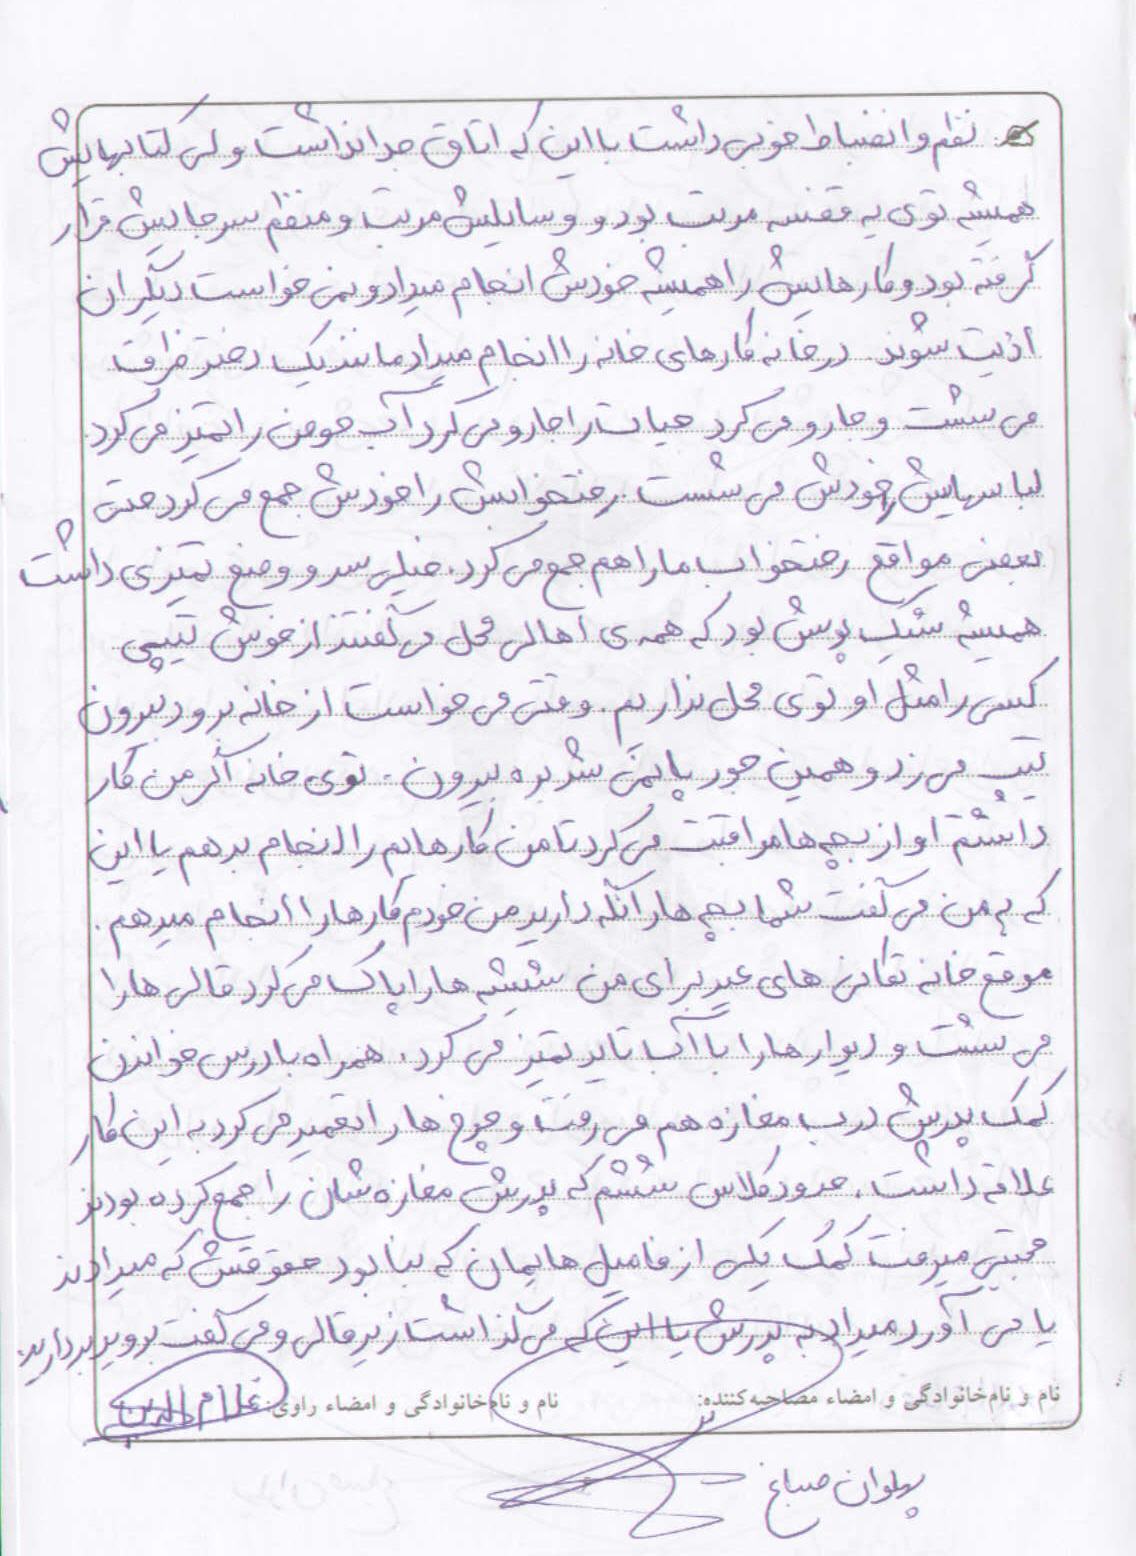 نظم و انضباط خوبی داشت با این که اتاق جدا نداشت ولی کتابهایش
همیشه توی یه قفسه مرتب بود و وسایلش مرتب و منظم سر جایش قرار
گرفته بود و کارهایش را همیشه خودش انجام میداد و نمی خواست دیگران
اذیت شوند. در خانه کارهای خانه را انجام میداد مانند یک دختر ظرف
می شست و جارو می کرد حیاط را جارو می کرد آب حوض را تمیز می کرد.
لباسهایش خودش می شست. رختخوابش را خودش جمع می کرد حتی
بعضی مواقع رختخواب ما را هم جمع می کرد. خیلی سر و وضع تمیزی داشت
همیشه شیک پوش بود که همه ی اهالی محل می گفتند از خوش تیپی
کسی را مثل او توی محل نداریم. وقتی می خواست از خانه برود بیرون
تیپ می زد و همین جور پا نمی شد بره بیرون. توی خانه اگر من کار
داشتم او از بچه ها مراقبت می کرد تا من کارهایم را انجام بدهم یا این
که به من می گفت شما بچه ها را نگه دارید من خودم کارها را انجام میدهم.
موقع خانه تکانی های عید برای من شیشه ها را پاک می کرد قالی ها را
می شست و دیوارها را با آب تاید تمیز می کرد. همراه با درس خواندن
کمک پدرش درب مغازه هم می رفت و چرخ ها را تعمیر می کرد به این کار
علاقه داشت. حدود کلاس ششم که پدرش مغازه شان را جمع کرده بودند
مجتبی میرفت کمک یکی از فامیل هایمان که بنا بود حقوقش که میدادند
یا می آورد میداد به پدرش یا این که می گذاشت زیر قالی و می گفت بروید بردارید.
نام و نام‌خانوادگی و امضاء مصاحبه‌کننده: نام و نام‌خانوادگی و امضاء راوی:
پهلوان صباغ